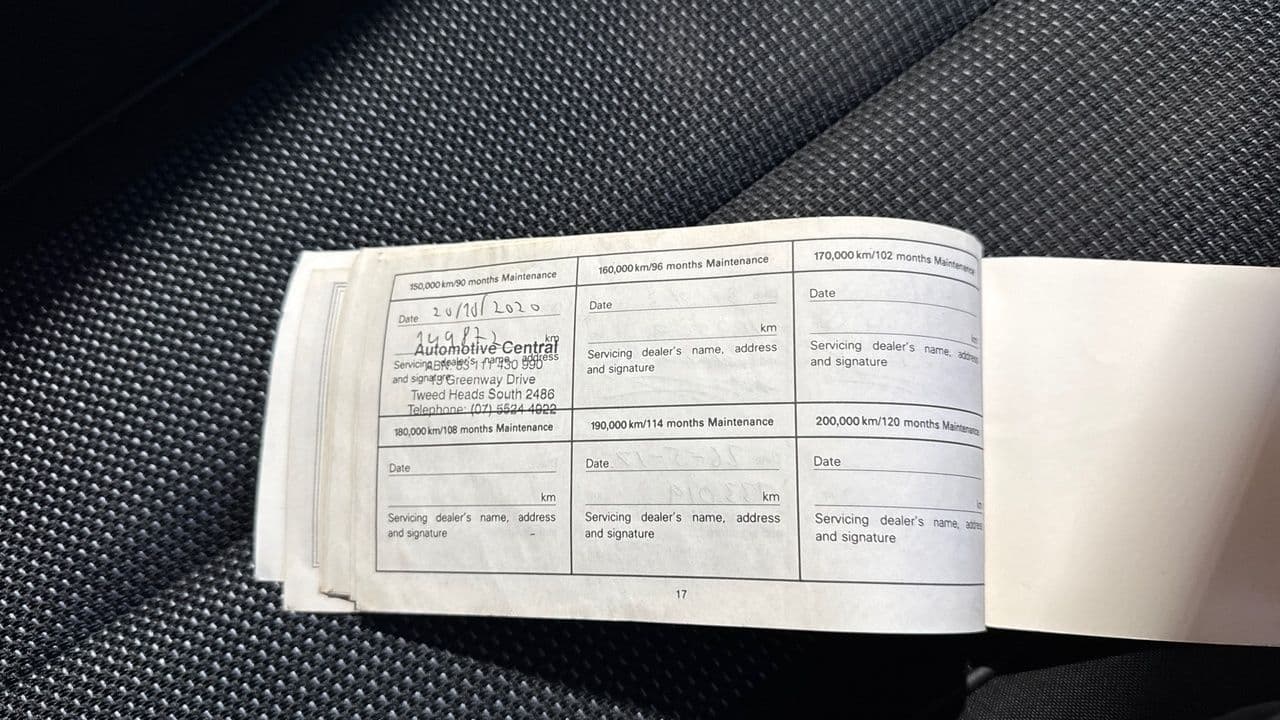 150,000 km/90 months Maintenance
Date 20/10/2020
km
Automotive Central
Servicing dealer's name, address
and signature
Greenway Drive
Tweed Heads South 2486
Telephone: (07) 5524 4922
160,000 km/96 months Maintenance
Date
km
Servicing dealer's name, address
and signature
170,000 km/102 months Maintenance
Date
km
Servicing dealer's name, address
and signature
180,000 km/108 months Maintenance
Date
km
Servicing dealer's name, address
and signature
190,000 km/114 months Maintenance
Date
km
Servicing dealer's name, address
and signature
200,000 km/120 months Maintenance
Date
Servicing dealer's name, address
and signature
17